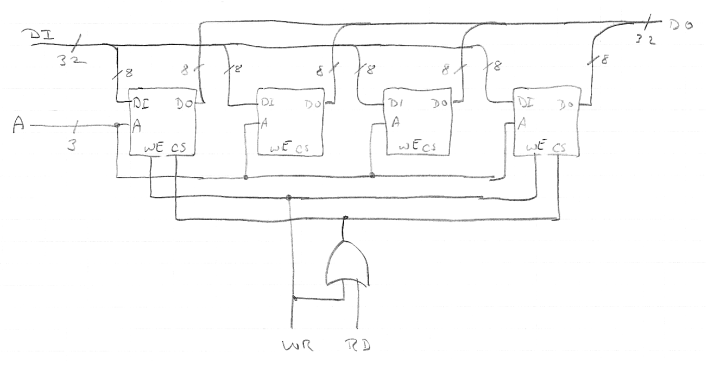 DI
32
8
8
8
8
8
8
8
8
32
DO
DI DO
A
WE CS
DI DO
A
WE CS
DI DO
A
WE CS
DI DO
A
WE CS
A
3
WR RD